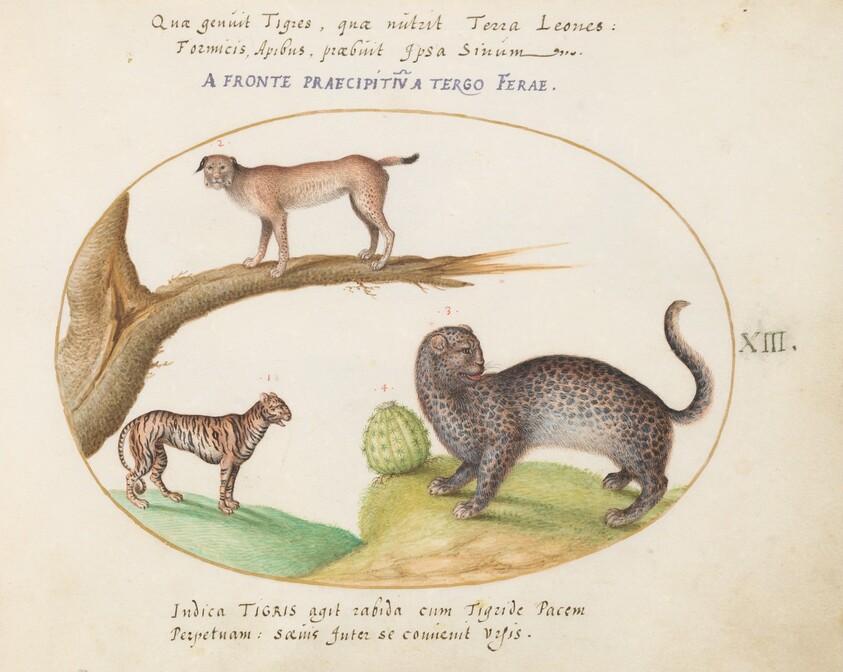 Quæ genuit Tigres, quæ nutrit Terra Leones:
Formicis, Apibus, præbuit Ipsa Sinum.
A FRONTE PRAECIPITIV̄ A TERGO FERAE.
2
3
XIII.
1
4
Indica TIGRIS agit rabida cum Tigride Pacem
Perpetuam: sæuis Inter se conuenit Vrsis.